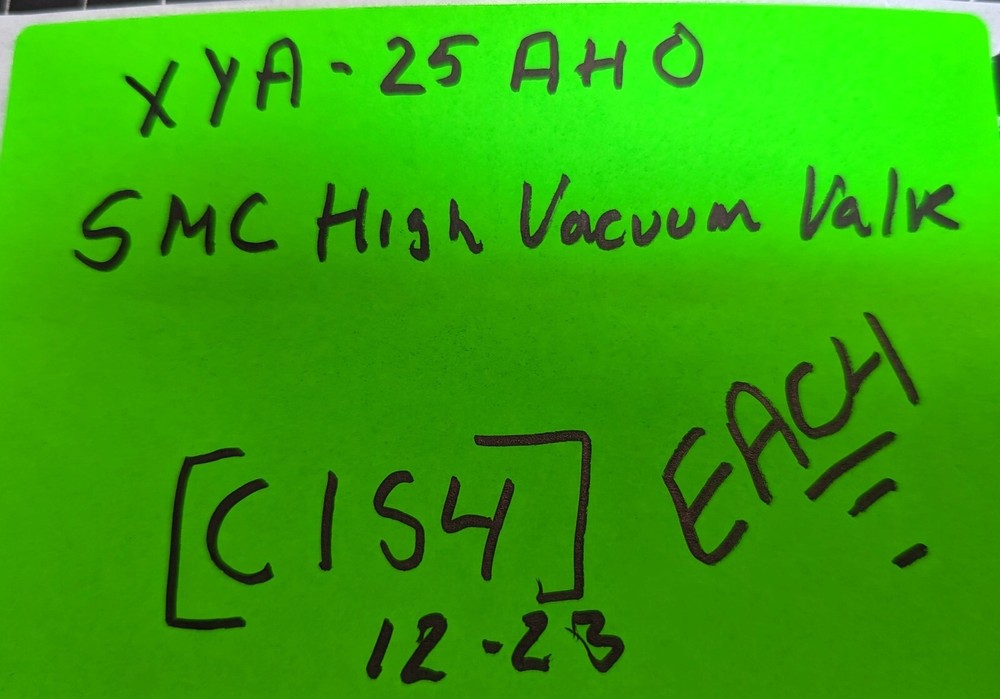 XYA-25AHO
SMC High Vacuum Valve
EACH
[C154]
12-23